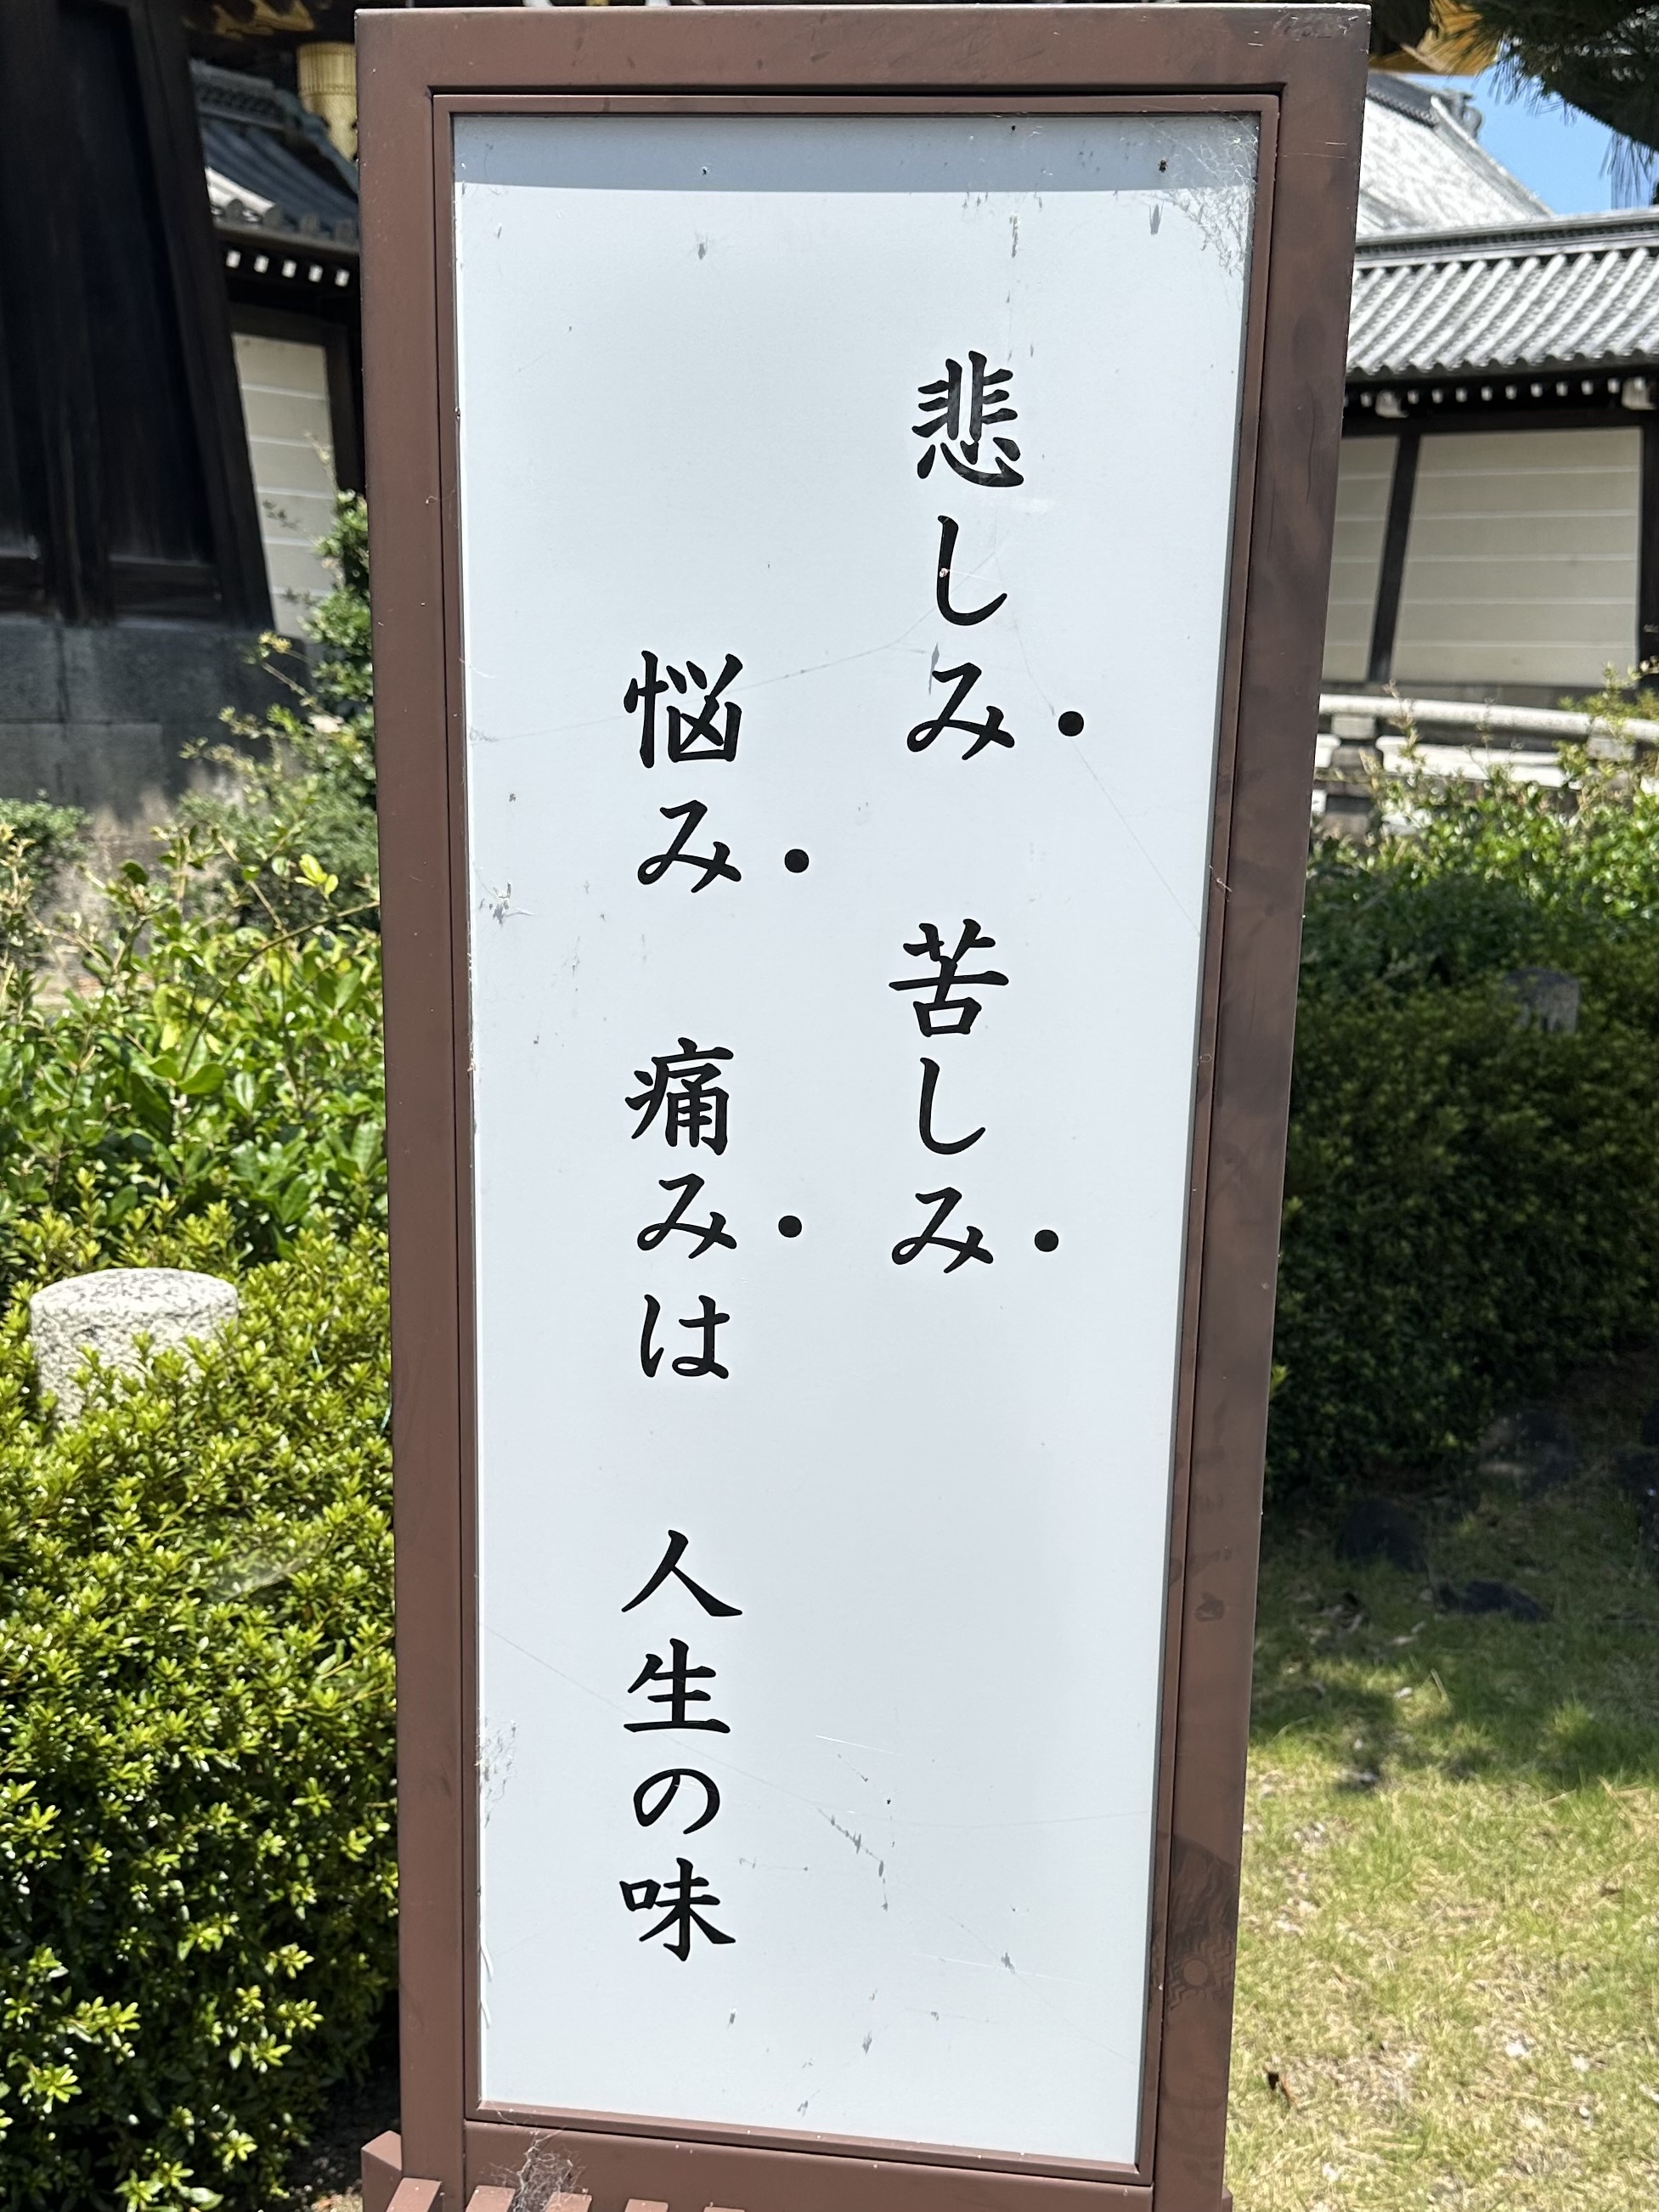 悲しみ 苦しみ
悩み 痛みは 人生の味